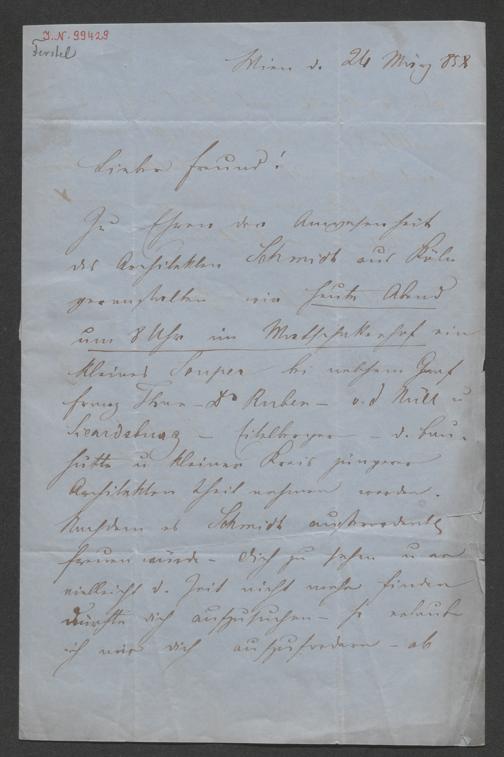 I.N. 99429
Ferstel
Wien d. 26 März 858
Lieber Freund!
Zu Ehren der Anwesenheit
des Architekten Schmidt aus Köln
veranstalten wir heute Abend
um 8 Uhr im Matschakerhof ein
kleines Souper bei welchem Graf
Franz Thun – Dr Ruben – v. d Nüll u
Sicardsburg – Eitelberger – d. Bau-
hütte u kleiner Kreis jüngerer
Architekten theil nehmen werden.
Nachdem es Schmidt außerordentl
freuen würde – dich zu sehen u er
vielleicht d. Zeit nicht mehr finden
dürfte dich aufzusuchen – so erlaube
ich mir dich aufzufordern – ob